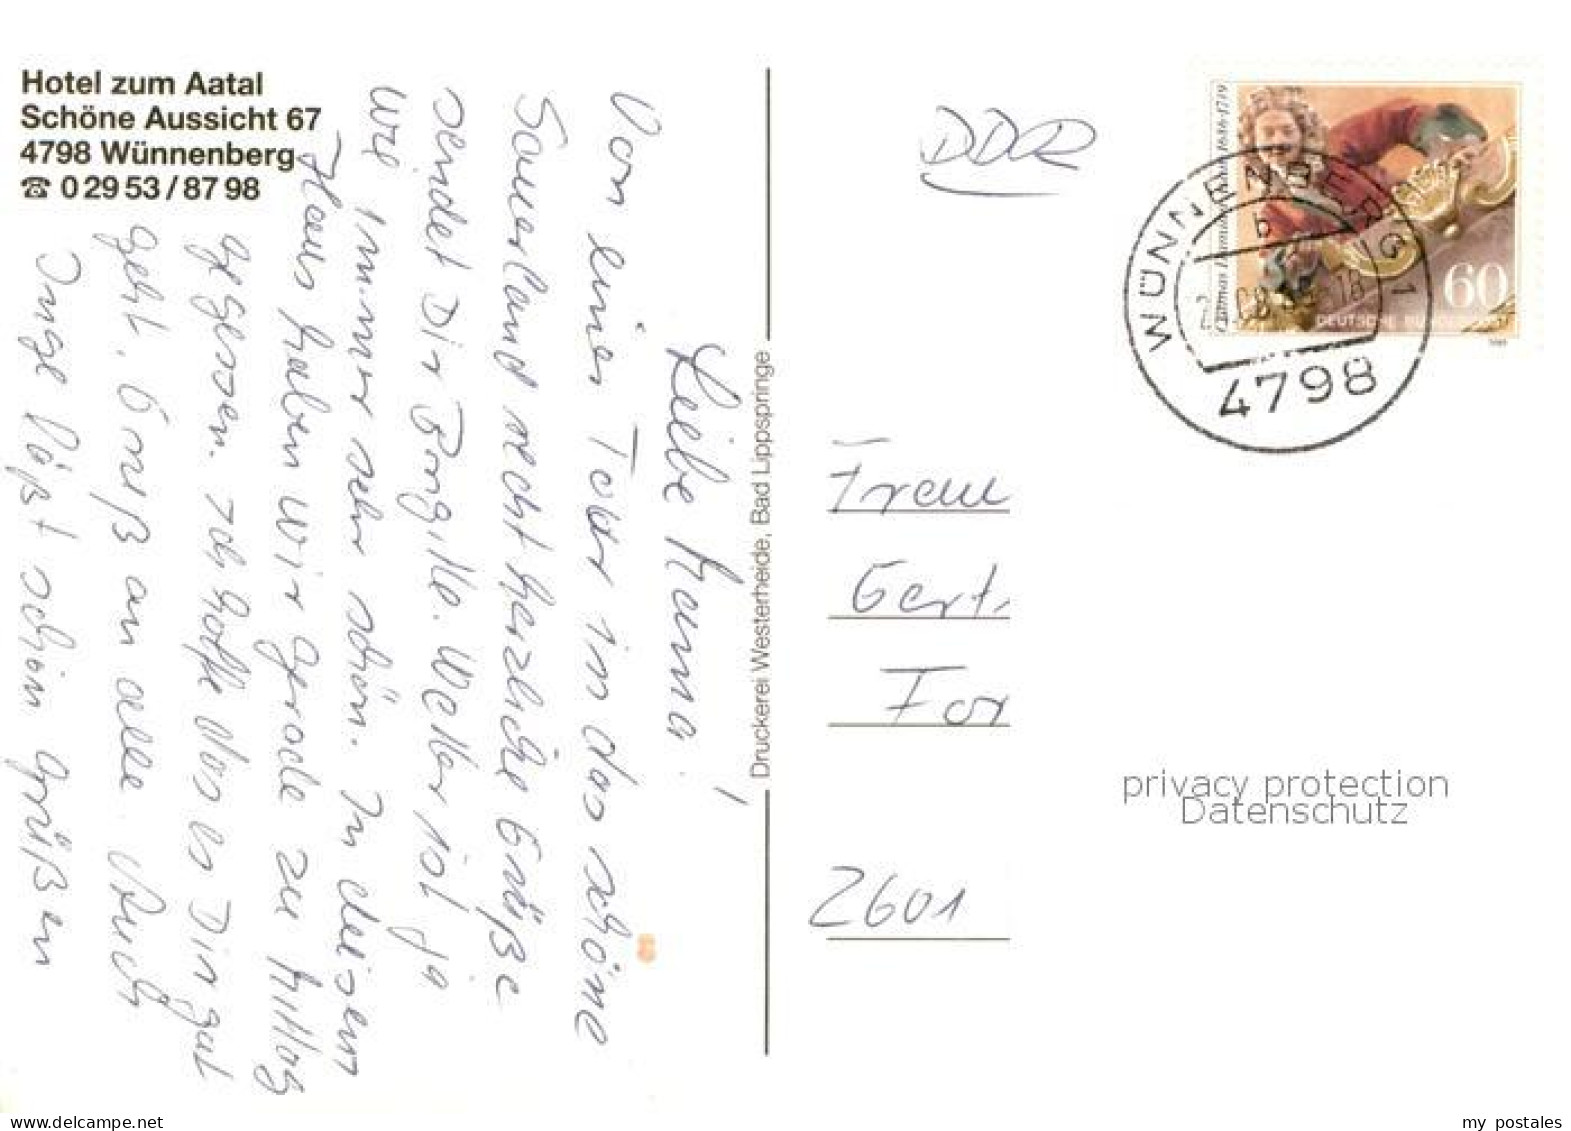 Hotel zum Aatal
Schöne Aussicht 67
4798 Wünnenberg
☎ 0 29 53 / 87 98
Liebe Hanna!
Von einer Tour in das schöne
Sauerland recht herzliche Grüße
sendet Dir Brgitte. Wetter ist ja
wie immer sehr schön. In diesem
Haus haben wir gerade zu Mittag
gegessen. Ich hoffe das es Dir gut
geht. Gruß an alle. Auch
Inge läßt schön grüßen
Druckerei Westerheide, Bad Lippspringe
DDR
1686-1719
60
DEUTSCHE
WÜNNENBERG 1
b
4798
Frau
Gert
For
2601
privacy protection
Datenschutz
my postales